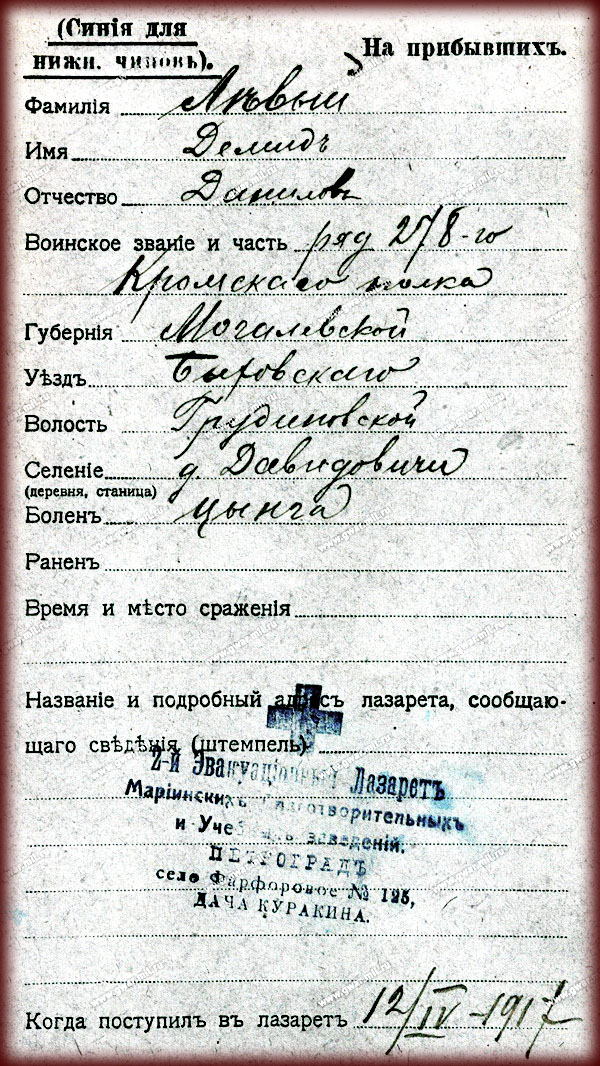 (Синія для
нижн. чиновъ).
На прибывшихъ.
Фамилія Лѣвый
Имя Демидъ
Отчество Даниловъ
Воинское званіе и часть ряд 278-го
Кромскаго полка
Губернія Могилевской
Уѣздъ Быховскаго
Волость Грудиновской
Селеніе д. Давидовичи
(деревня, станица)
Боленъ цынга
Раненъ
Время и мѣсто сраженія
Названіе и подробный адресъ лазарета, сообщаю-
щаго свѣдѣнія (штемпель)
2-й Эвакуаціонный Лазаретъ
Маріинскихъ Благотворительныхъ
и Учебныхъ заведеній.
ПЕТРОГРАДЪ
село Фарфоровое № 125,
ДАЧА КУРАКИНА.
Когда поступилъ въ лазаретъ 12/IV-1917